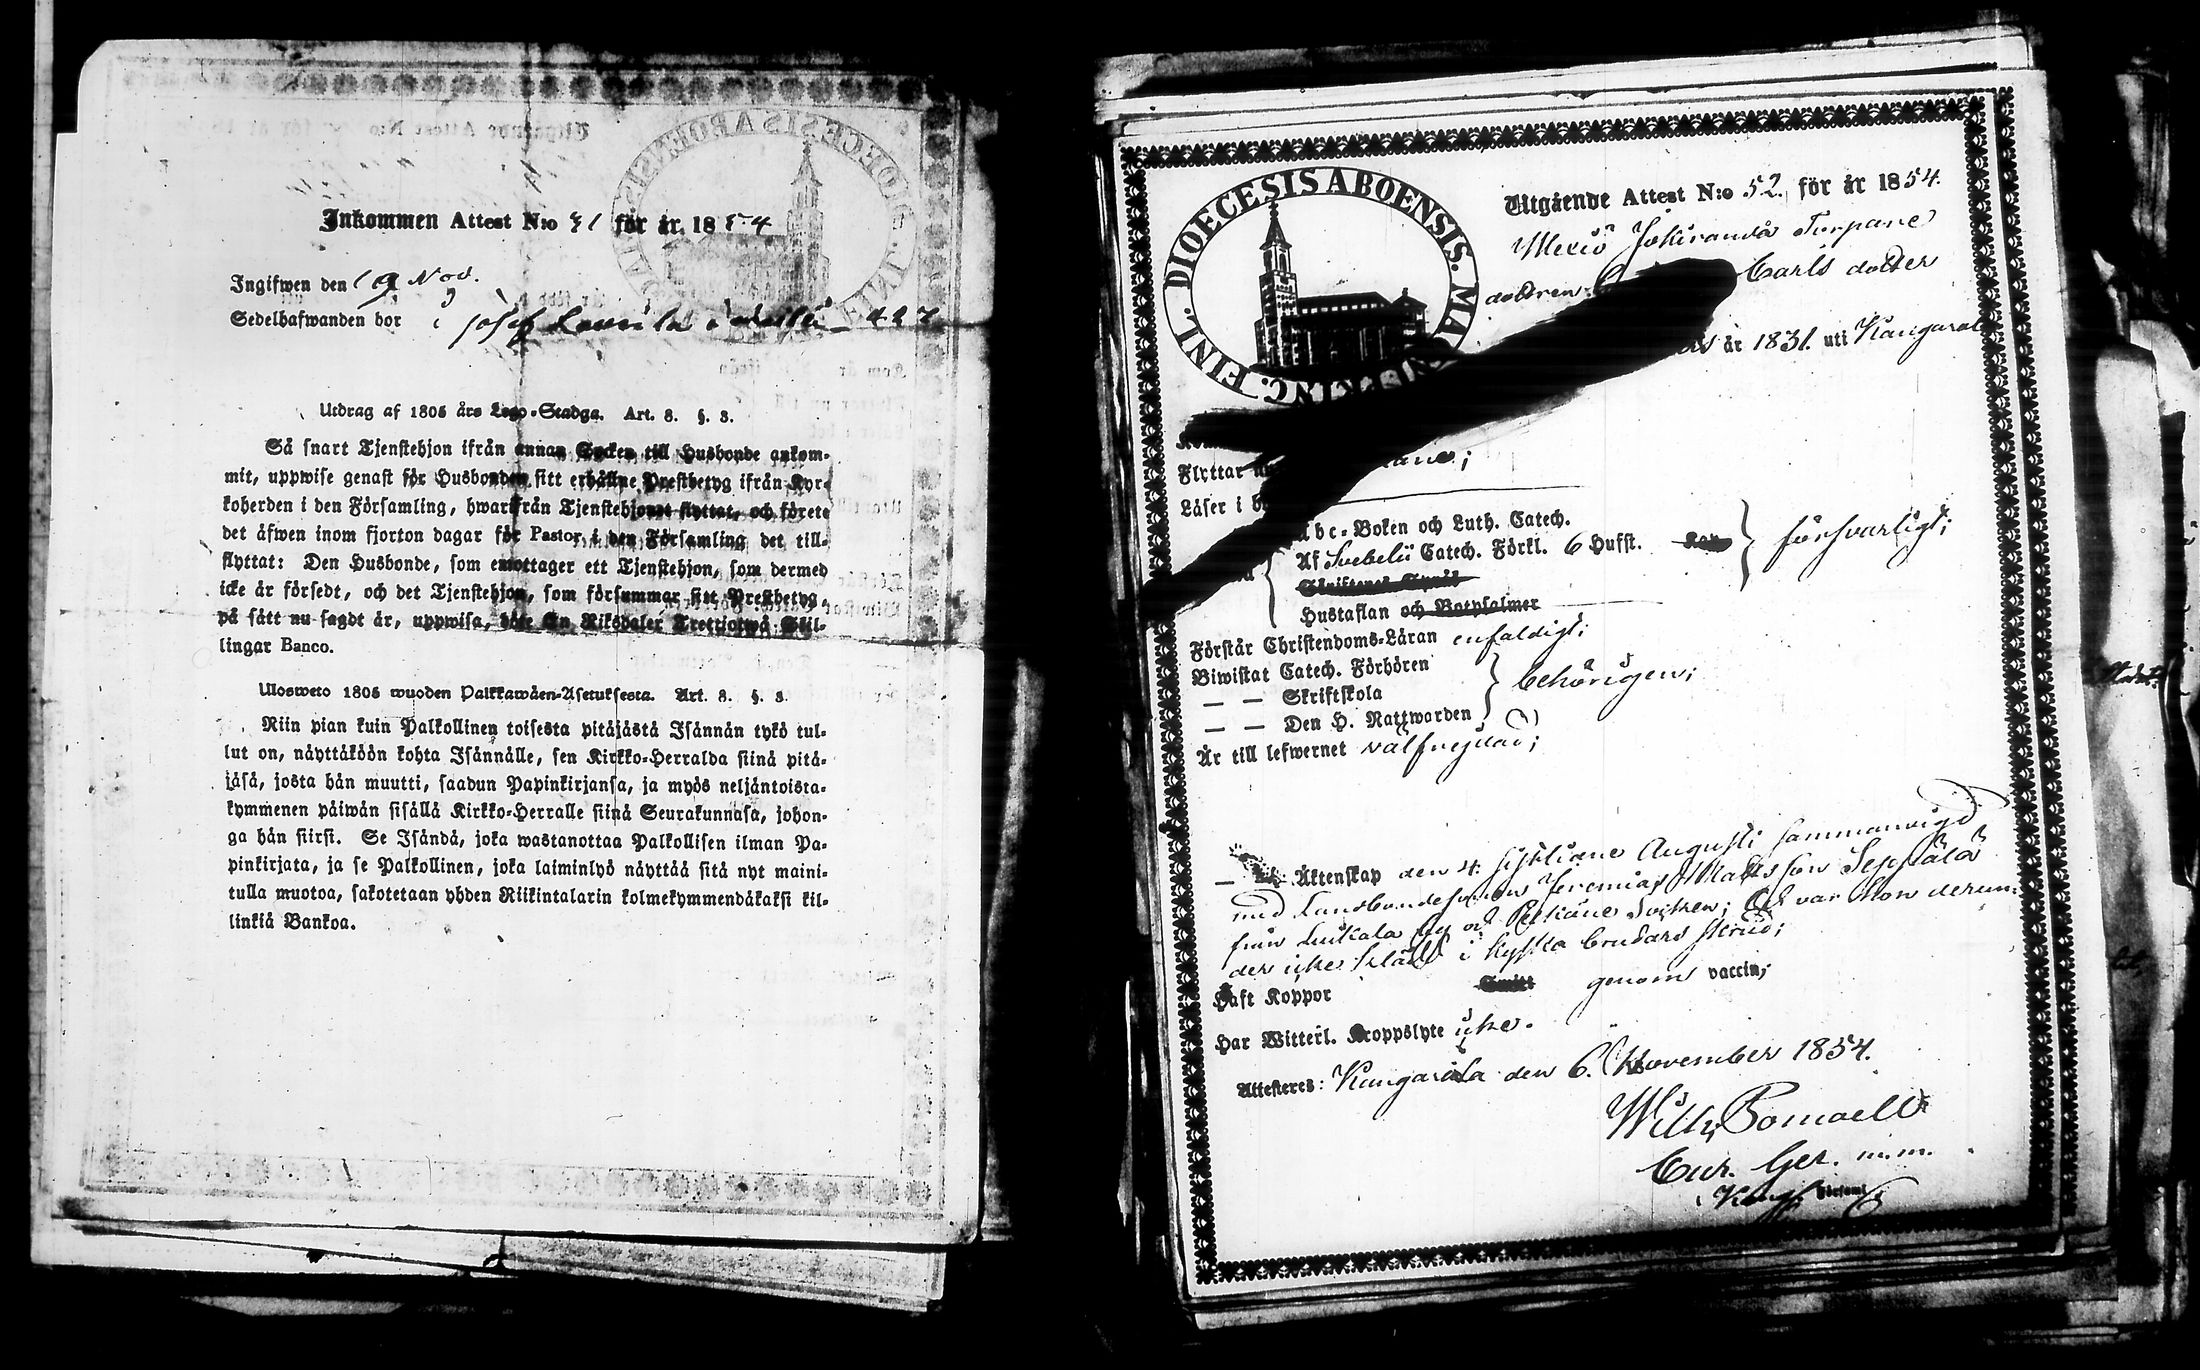 Inkommen Attest N:o 41 för år 1854
Ingifwen den 19 Nov.
Sedelhafwanden bor i Josef
Utdrag af 1805 års Lego-Stadga. Art. 8. §. 3.
Så snart Tjenstehjon ifrån annan Socken till Husbonde ankom-
mit, uppwise genast för Husbonden sitt erhållne Prestbetyg ifrån Kyr-
koherden i den Församling, hwarifrån Tjenstehjonet flyttat, och förete
det äfwen inom fjorton dagar för Pastor i den Församling det till-
flyttat: Den Husbonde, som emottager ett Tjenstehjon, som dermed
icke är försedt, och det Tjenstehjon, som försummar sitt Prestbetyg,
på sätt nu sagdt är, uppwisa, böte En Riksdaler Trettiotwå Skil-
lingar Banco.
Ulosweto 1805 wuoden Palkkawäen-Asetuksesta. Art. 8. §. 3.
Niin pian kuin Palkollinen toisesta pitäjästä Isännän tykö tul-
lut on, näyttäköön kohta Isännälle, sen Kirkko-Herralda siinä pitä-
jäsä, josta hän muutti, saadun Papinkirjansa, ja myös neljäntoista-
kymmenen päiwän sisällä Kirkko-Herralle siinä Seurakunnasa, johon-
ga hän siirsi. Se Isändä, joka wastanottaa Palkollisen ilman Pa-
pinkirjata, ja se Palkollinen, joka laiminlyö näyttää sitä nyt maini-
tulla muotoa, sakotetaan yhden Riikintalarin kolmekymmendäkaksi kil-
linkiä Bankoa.
DIOECESIS ABOENSIS. FINL.
Utgående Attest N:o 52. för år 1854.
Carls dotter
år 1831. uti Kangasala
Flyttar
Läser i
Abc-Boken och Luth. Catech.
Af Svebelii Catech. Förkl. 6 Hufst. Kap försvarligt;
Skriftenes Språk
Hustaflan och Botpsalmer
Förstår Christendoms-Läran enfaldigt;
Biwistat Catech. Förhören
— — Skriftskola behörigen;
— — Den H. Nattwarden
Är till lefwernet välfrejdad;
— Äktenskap den 4. sistlidne Augusti sammanvigd
med Landbondesonen Jeremias Matts son Seppälä
från Luikala by och Pelkäne Socken; och var hon derun-
der icke klädd i kyska brudars skrud;
Haft Koppor Smitt genom vaccin;
Har Witterl. Kroppslyte icke.
Attesteras: Kangasala den 6. November 1854.
Wilh. Pomoell
Cur. Ger. m.m.
i Församl.